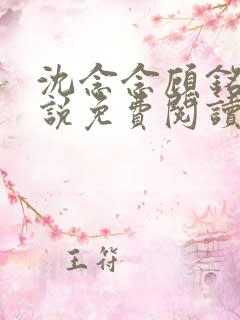 沈念念顧銘
說免費閱讀
王符